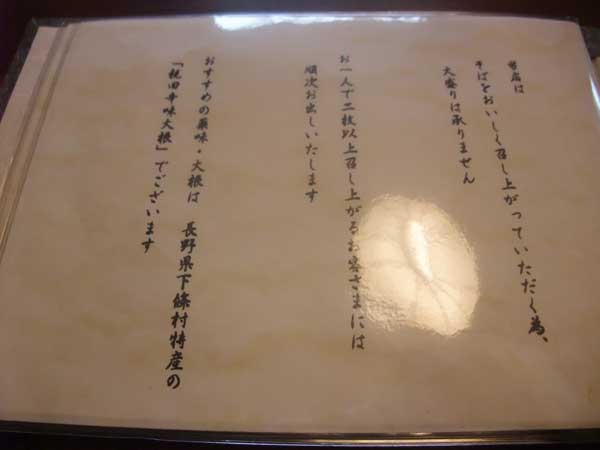 当店は
そばをおいしく召し上がっていただく為、
大盛りは承りません
お一人で二枚以上召し上がるお客さまには
順次お出しいたします
おすすめの薬味・大根は 長野県下條村特産の
「親田辛味大根」でございます